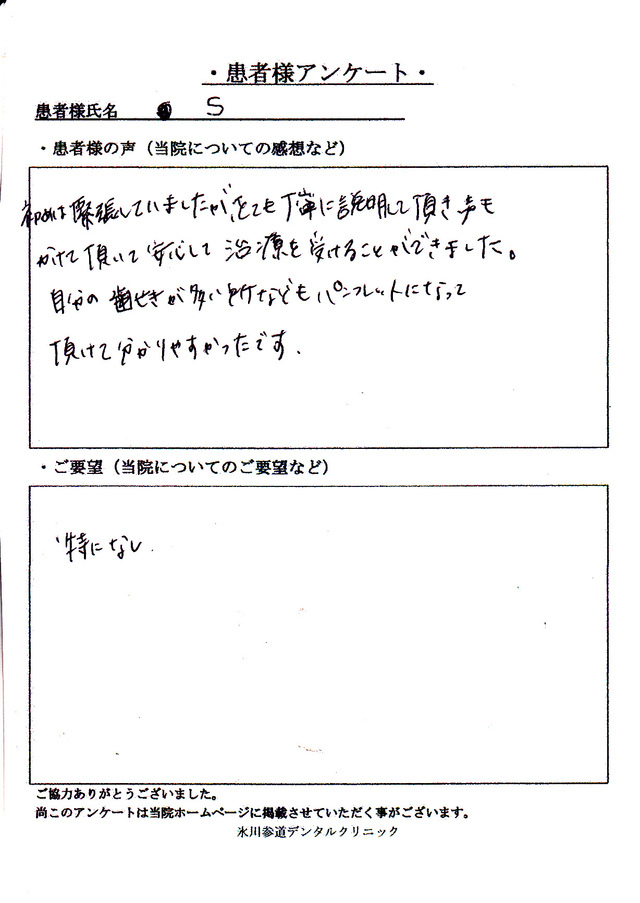 ・患者様アンケート・
患者様氏名 S
・患者様の声（当院についての感想など）
初めは緊張していましたがとても丁寧に説明して頂き声も
かけて頂いて安心して治療を受けることができました。
自分の歯ぐきが多い所などもパンフレットになって
頂けて分かりやすかったです.
・ご要望（当院についてのご要望など）
特になし.
ご協力ありがとうございました。
尚このアンケートは当院ホームページに掲載させていただく事がございます。
氷川参道デンタルクリニック